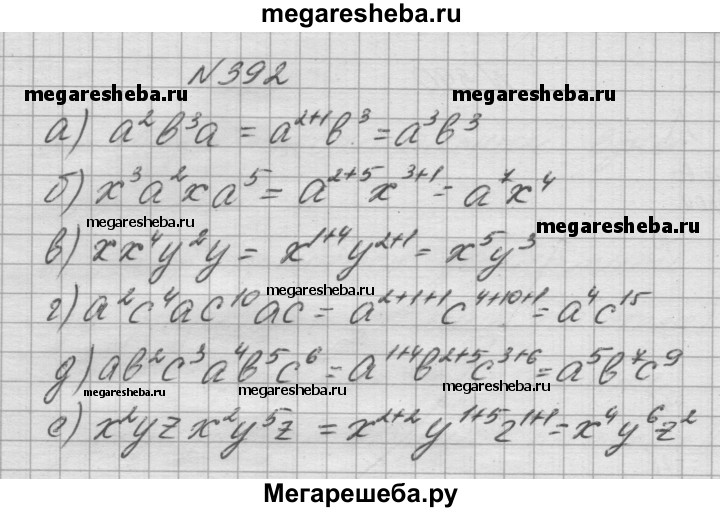 megaresheba.ru
№392
megaresheba.ru megaresheba.ru
а) a²b³a = a²⁺¹b³ = a³b³
б) x³a²xa⁵ = a²⁺⁵x³⁺¹ = a⁷x⁴
megaresheba.ru megaresheba.ru
в) xx⁴y²y = x¹⁺⁴y²⁺¹ = x⁵y³
megaresheba.ru megaresheba.ru
г) a²c⁴ac¹⁰ac = a²⁺¹⁺¹c⁴⁺¹⁰⁺¹ = a⁴c¹⁵
д) ab²c³a⁴b⁵c⁶ = a¹⁺⁴b²⁺⁵c³⁺⁶ = a⁵b⁷c⁹
megaresheba.ru megaresheba.ru megaresheba.ru
е) x²yzx²y⁵z = x²⁺²y¹⁺⁵z¹⁺¹ = x⁴y⁶z²
Мегарешеба.ру